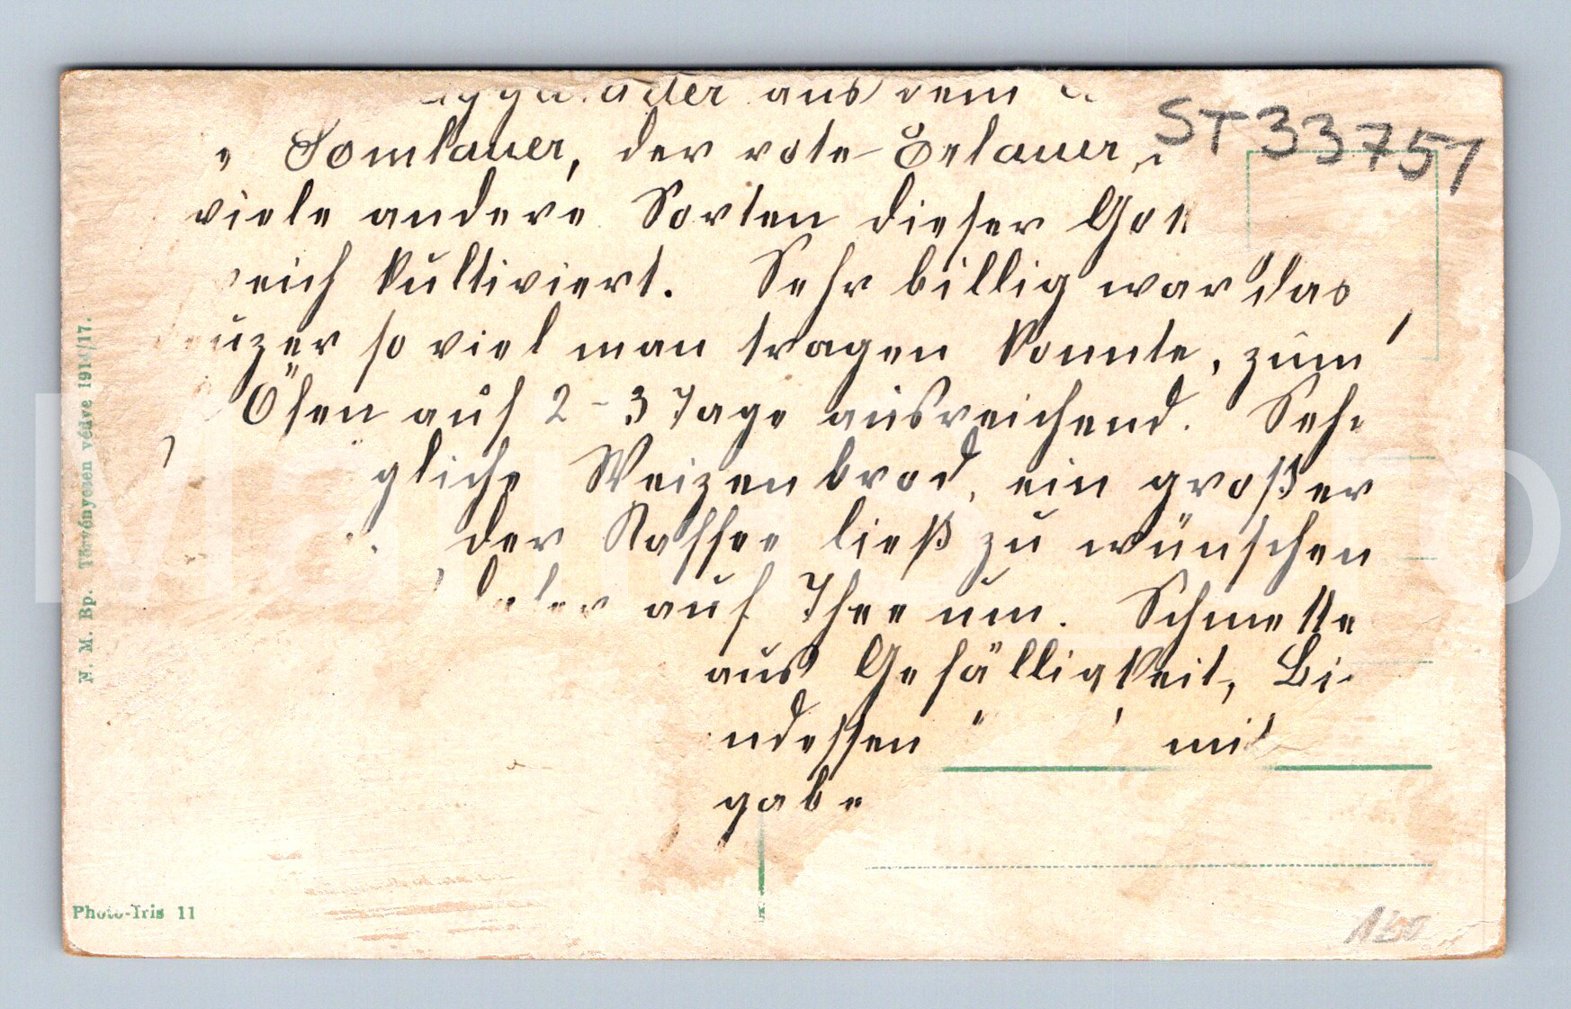 aus dem
„ Somlauer, der rote Erlauer,
viele andere Sorten dieser
reich kultiviert. Sehr billig war das
so viel man tragen konnte, zum
auf 2-3 Tage ausreichend. Seh
gliche Weizenbrod, ein großer
der Kaffee ließ zu wünschen
auf Thee um. Schmette
aus Gefälligkeit,
ndessen mit
gabe
ST33751
N. M. Bp. Törvényesen védve 191 /17.
Photo-Iris 11
150